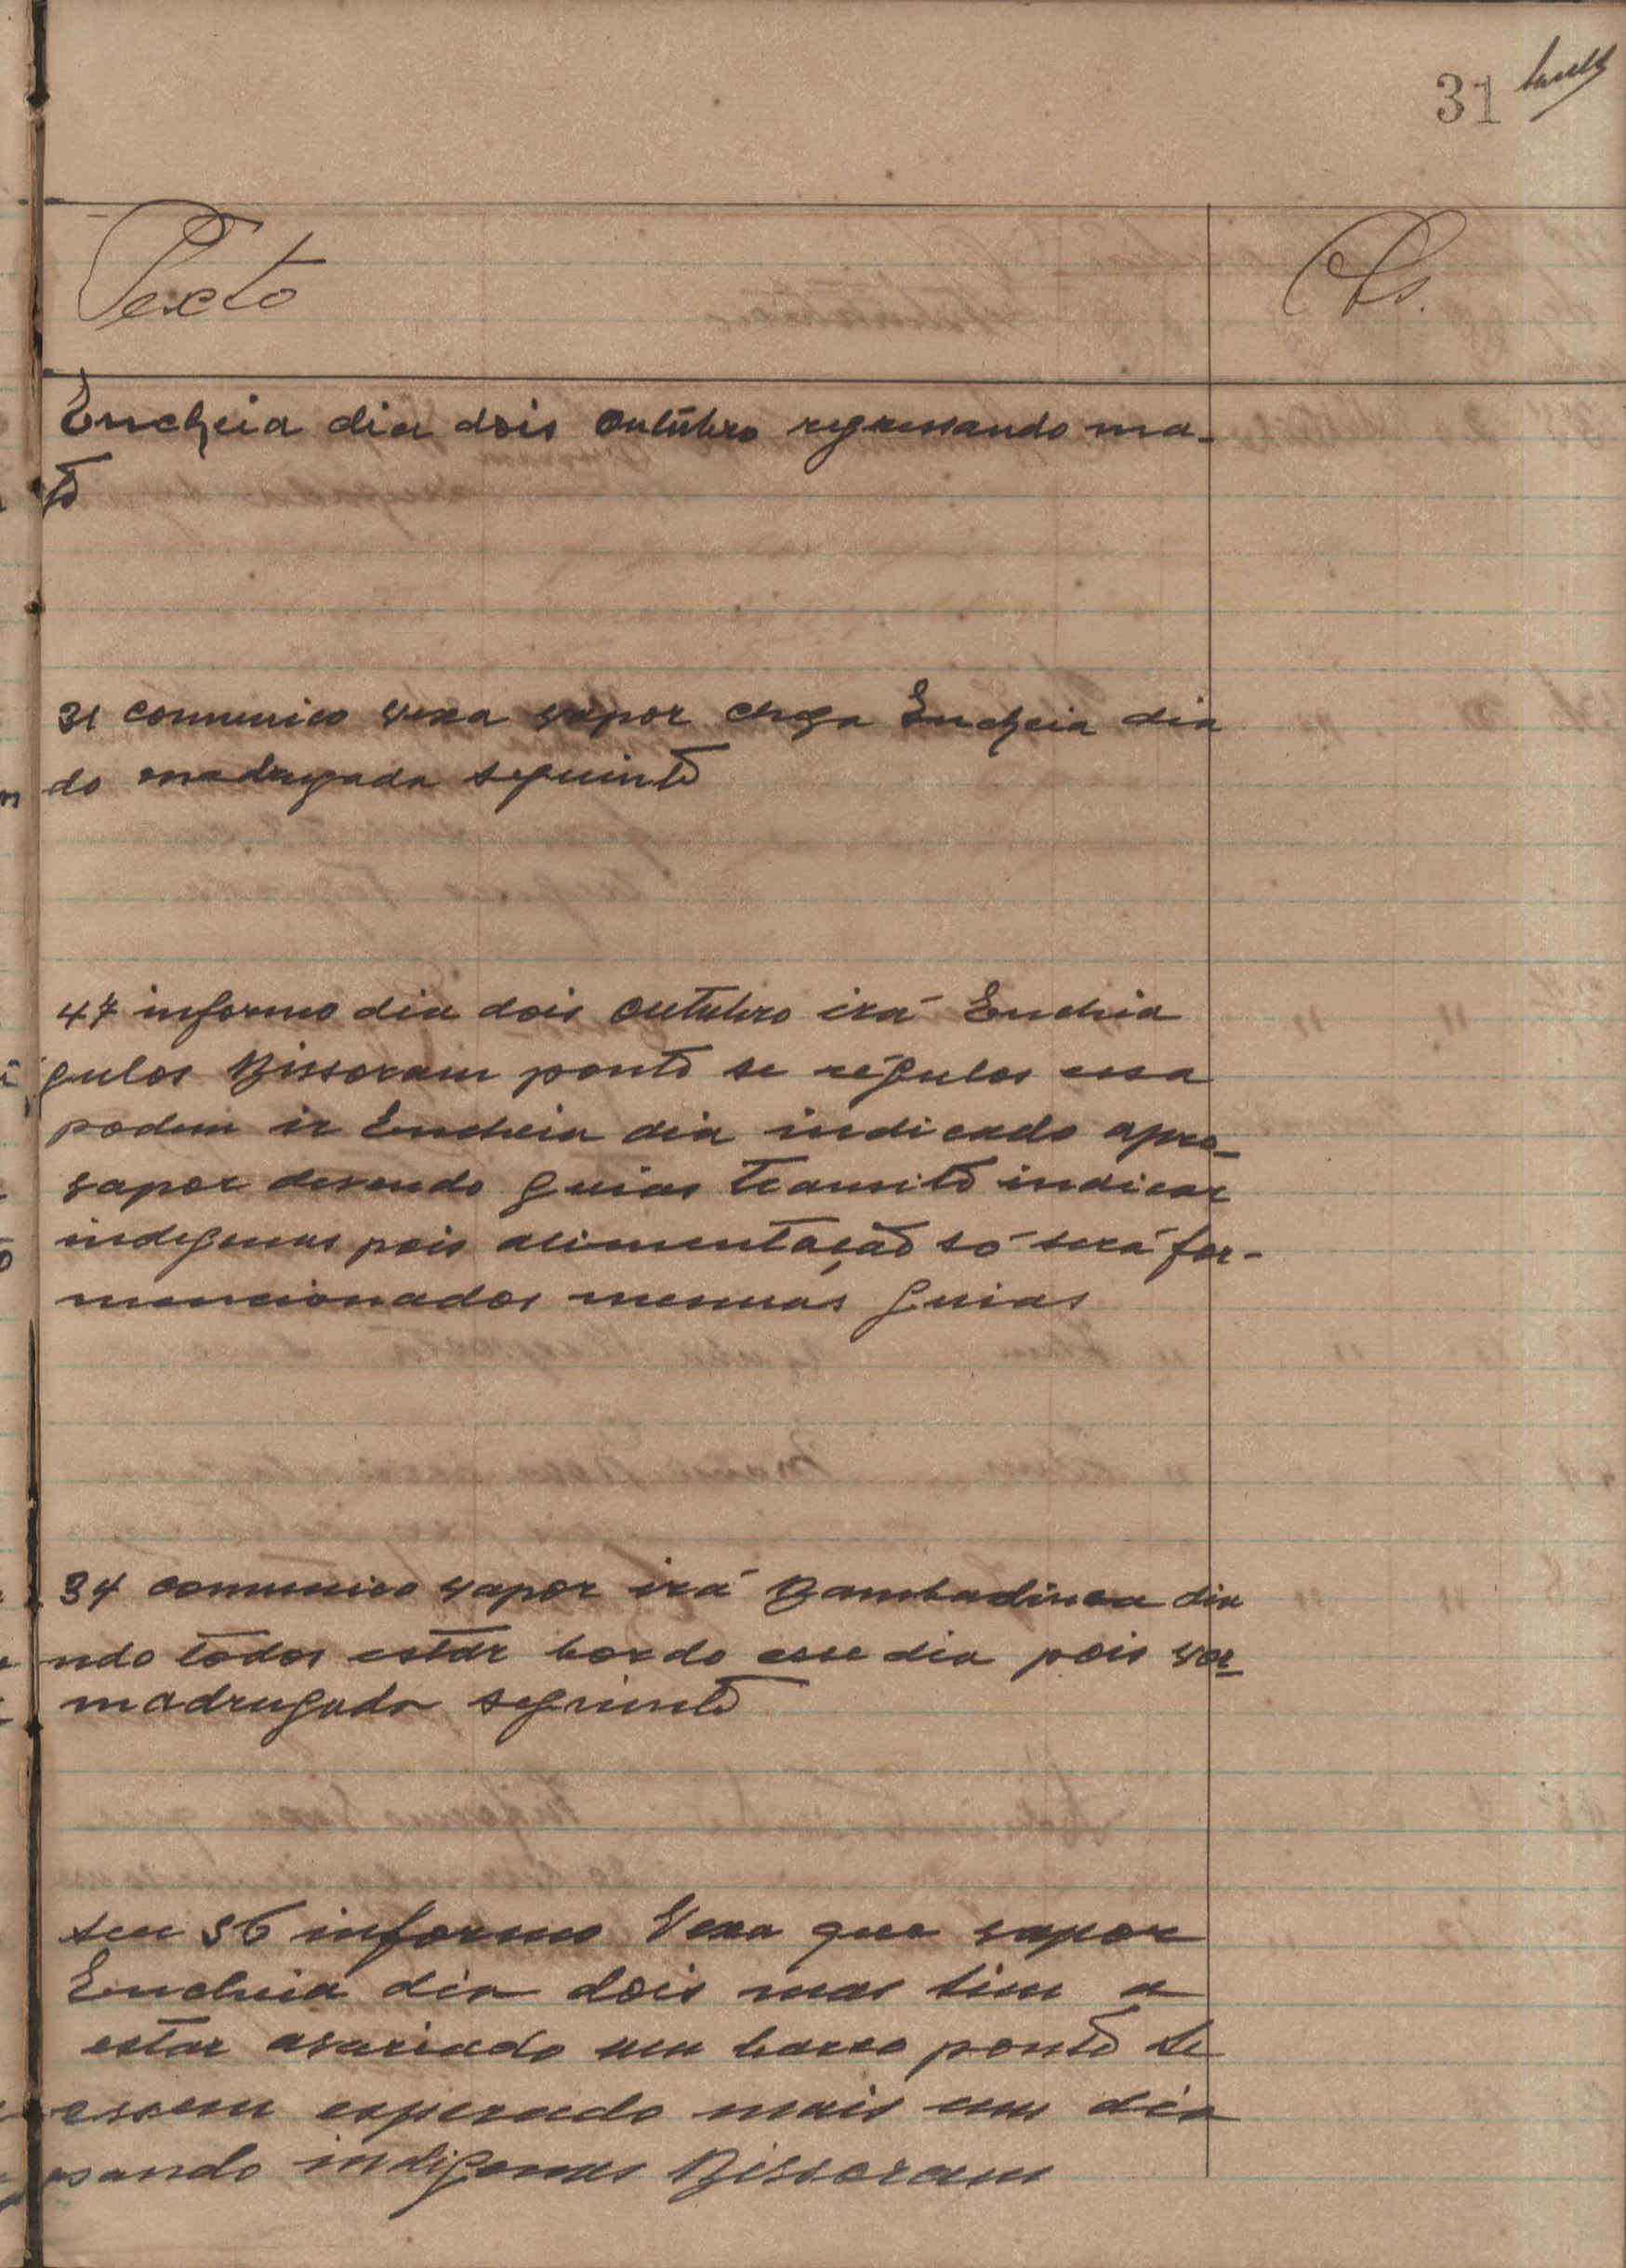 31
Texto
Obs.
Encheia dia dois Outubro regressando ma-
31 comunico vexa vapor chega Encheia dia
do madrugada seguinte
47 informo dia dois outubro irá Encheia
gulos Bissoram ponto se régulos essa
podem ir Encheia dia indicado apro-
vapor devendo guias transito indicar
indegenas pois alimentação só será for-
mencionados mesmas guias
34 comunico vapor irá Bambadinca dia
ndo todos estar bordo esse dia pois vor-
madrugada seguinte
seu 36 informo Vexa que vapor
Encheia dia dois mas sim a
estar avariado um barco ponto se
essem esperado mais um dia
sando indigenas Bissoram